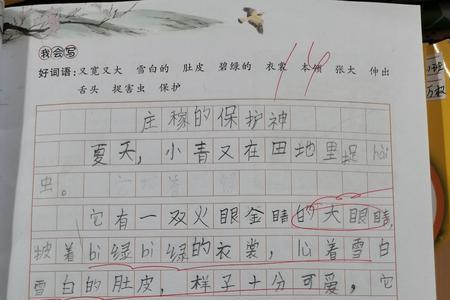 我会写
好词语：又宽又大 雪白的 肚皮 碧绿的 衣裳 本领 张大 伸出
舌头 捉害虫 保护
庄稼的保护神
夏天，小青又在田地里捉hài
虫。
它有一双火眼金睛的大眼睛，
披着bì绿bì绿的衣裳，心着雪白
雪白的肚皮，样子十分可爱，它